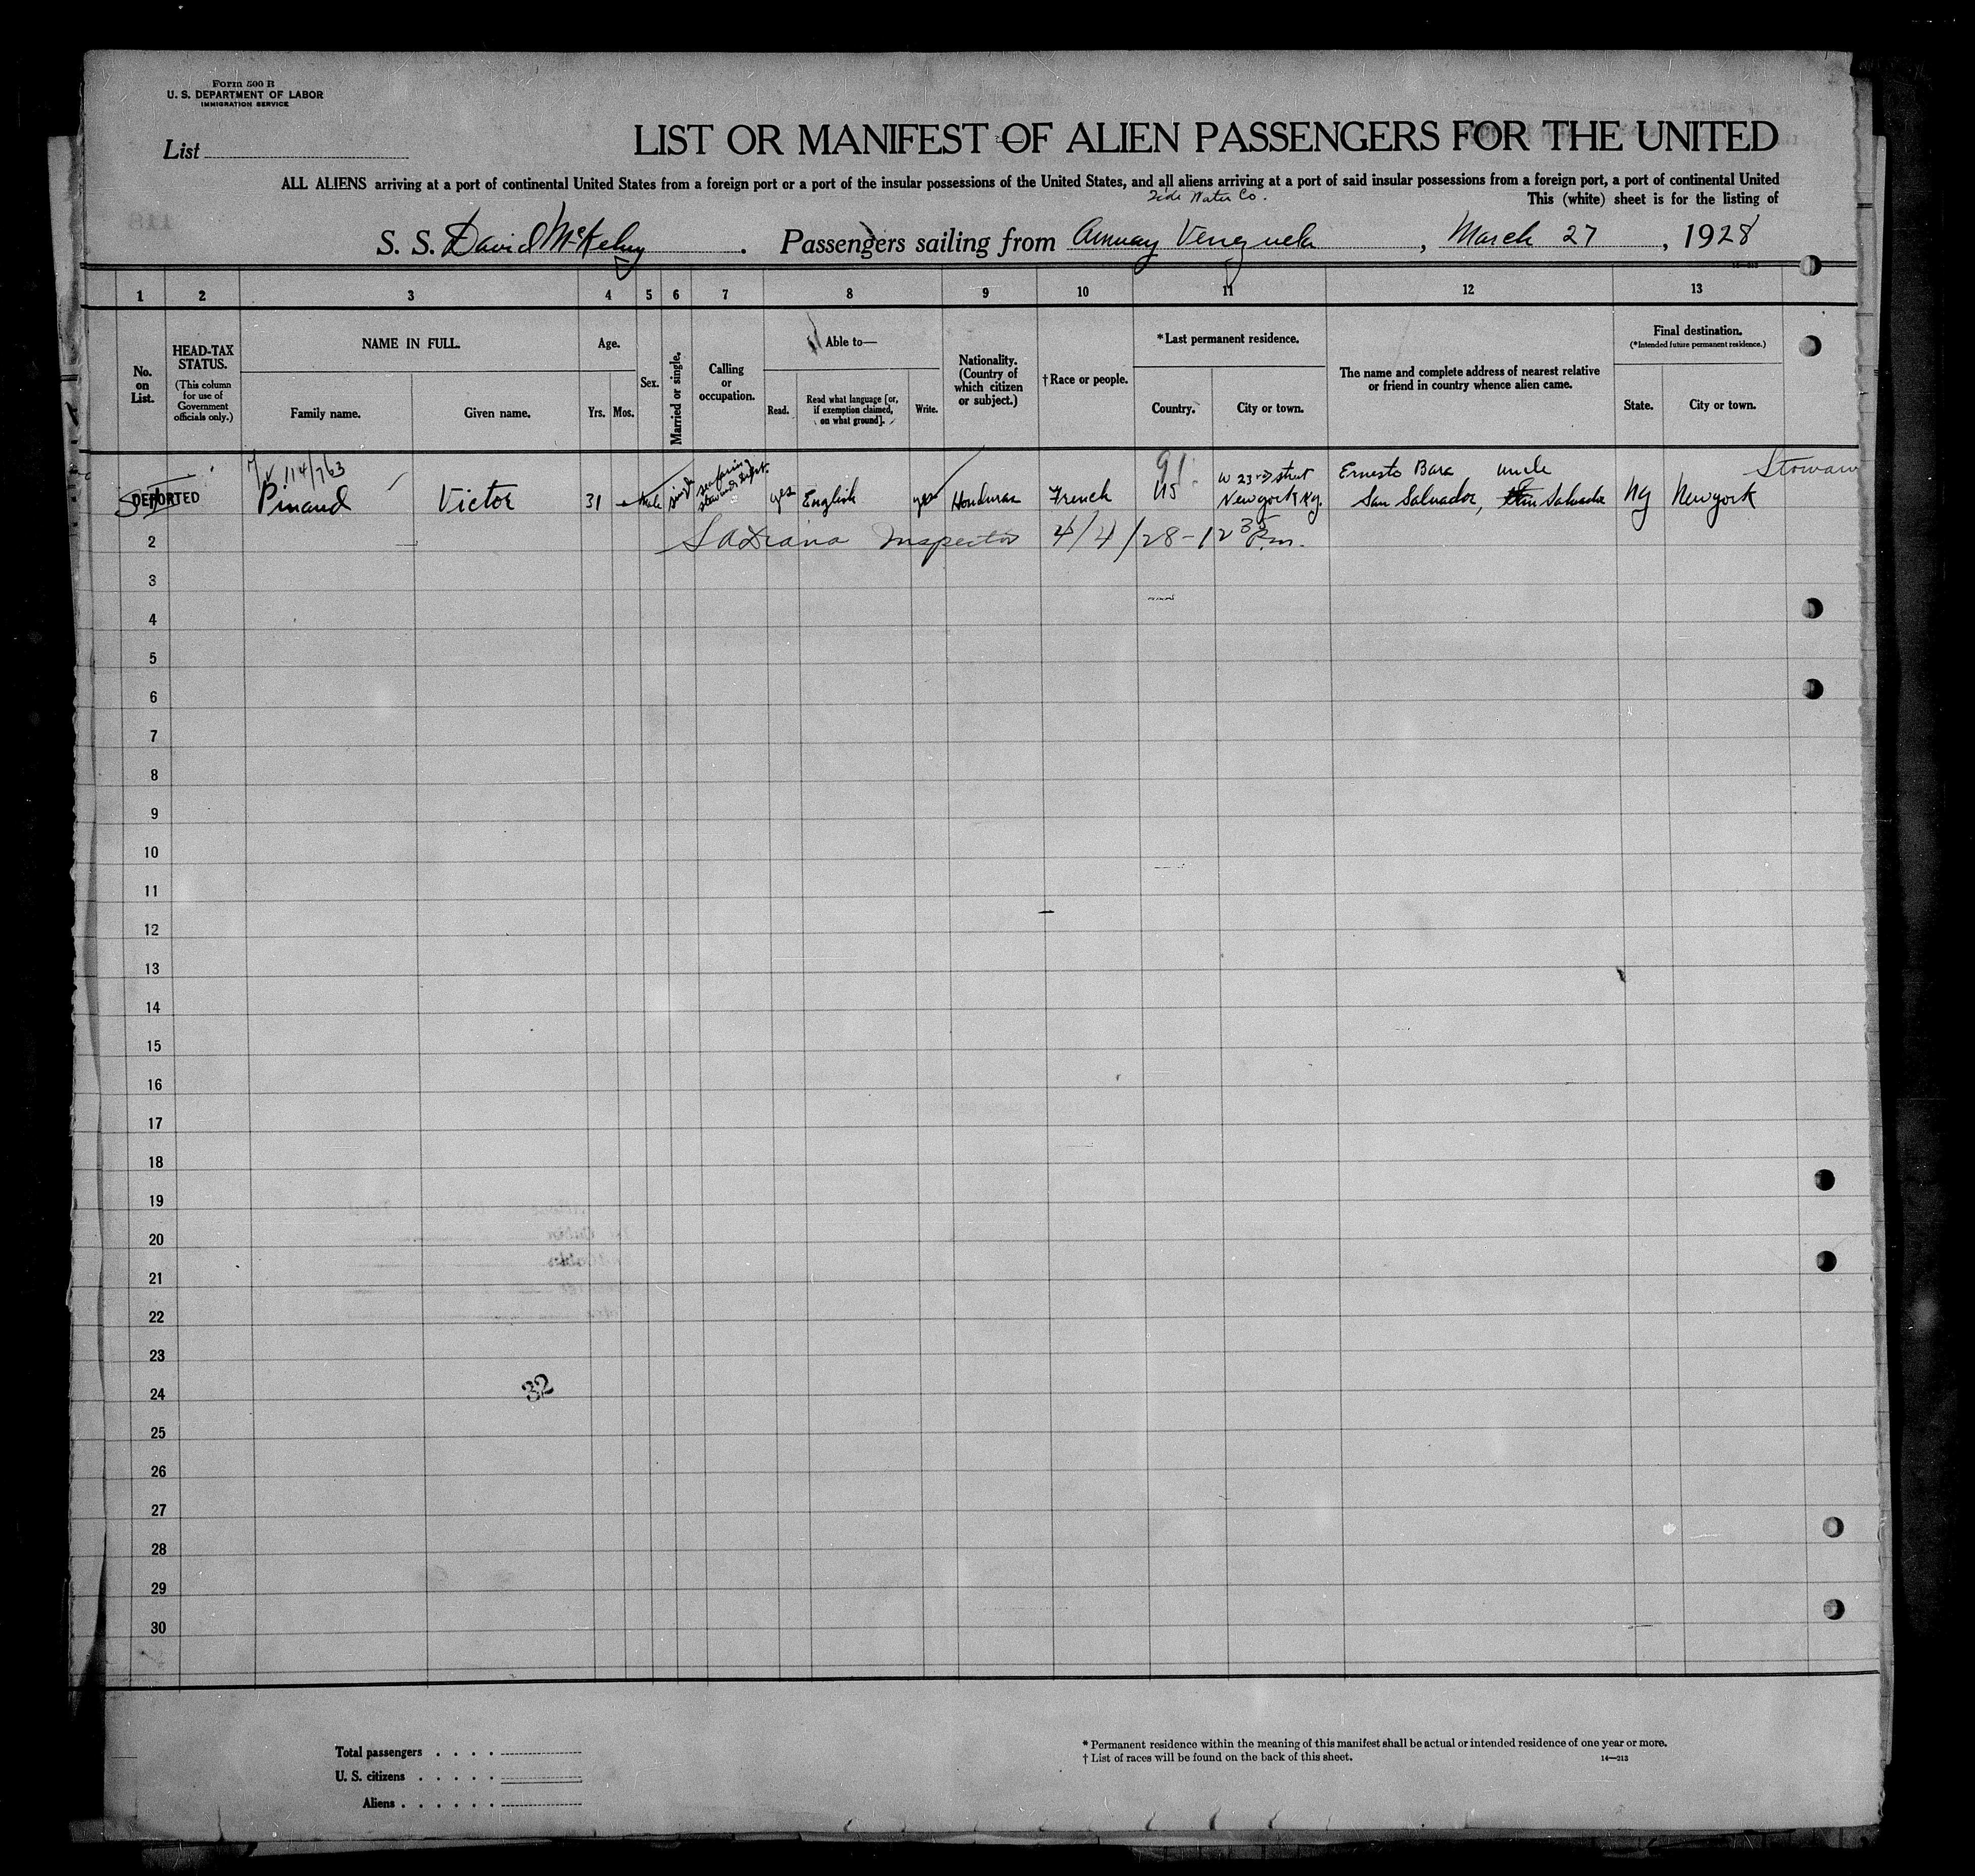 Form 500 B
U. S. DEPARTMENT OF LABOR
IMMIGRATION SERVICE
List
LIST OR MANIFEST OF ALIEN PASSENGERS FOR THE UNITED
ALL ALIENS arriving at a port of continental United States from a foreign port or a port of the insular possessions of the United States, and all aliens arriving at a port of said insular possessions from a foreign port, a port of continental United
Tide Water Co.
This (white) sheet is for the listing of
S. S. David McKelvy . Passengers sailing from Amuay Venezuela , March 27 , 1928
1 2 3 4 5 6 7 8 9 10 11 12 13
No. on List.
HEAD-TAX STATUS.
(This column for use of Government officials only.)
NAME IN FULL.
Family name.
Given name.
Age.
Yrs. Mos.
Sex.
Married or single.
Calling or occupation.
Able to—
Read.
Read what language [or, if exemption claimed, on what ground].
Write.
Nationality. (Country of which citizen or subject.)
† Race or people.
* Last permanent residence.
Country.
City or town.
The name and complete address of nearest relative or friend in country whence alien came.
Final destination.
(* Intended future permanent residence.)
State.
City or town.
114/763 91 W 23rd street Ernesto Bara uncle Stowaw
DEPORTED Pinaud Victor 31 Male single seafaring yes English yes Honduras French US New york N.y. San Salvador, Salvador Ny New york
2 Inspector 4/4/28-12 35 P.m.
3
4
5
6
7
8
9
10
11
12
13
14
15
16
17
18
19
20
21
22
23
24
32
25
26
27
28
29
30
Total passengers . . . .
U. S. citizens . . . . .
Aliens . . . . . .
* Permanent residence within the meaning of this manifest shall be actual or intended residence of one year or more.
† List of races will be found on the back of this sheet.
14—213